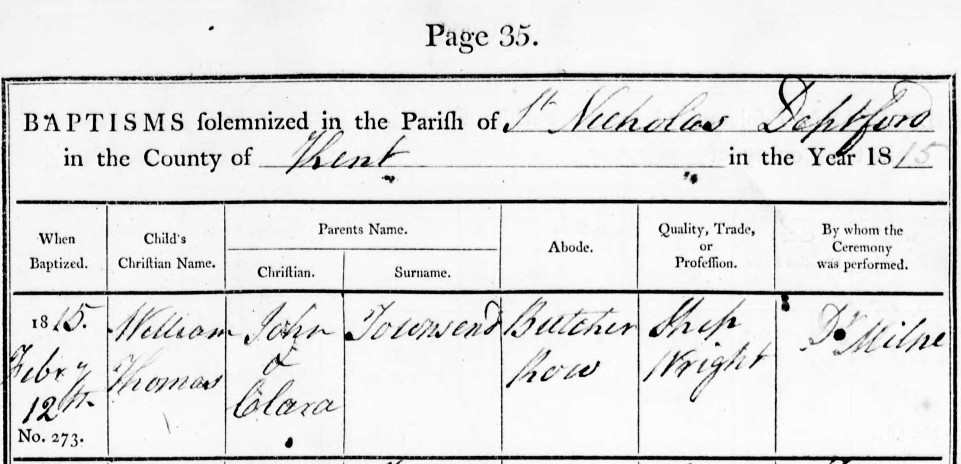 Page 35.
BAPTISMS ſolemnized in the Pariſh of St Nicholas Deptford
in the County of Kent in the Year 1815
When Baptized.
Child's Chriſtian Name.
Parents Name.
Chriſtian.
Surname.
Abode.
Quality, Trade, or Profeſſion.
By whom the Ceremony was performed.
1815.
Feby
12th
No. 273.
William
Thomas
John
&
Clara
Townsend
Butcher
Row
Ship
Wright
Dr Milne